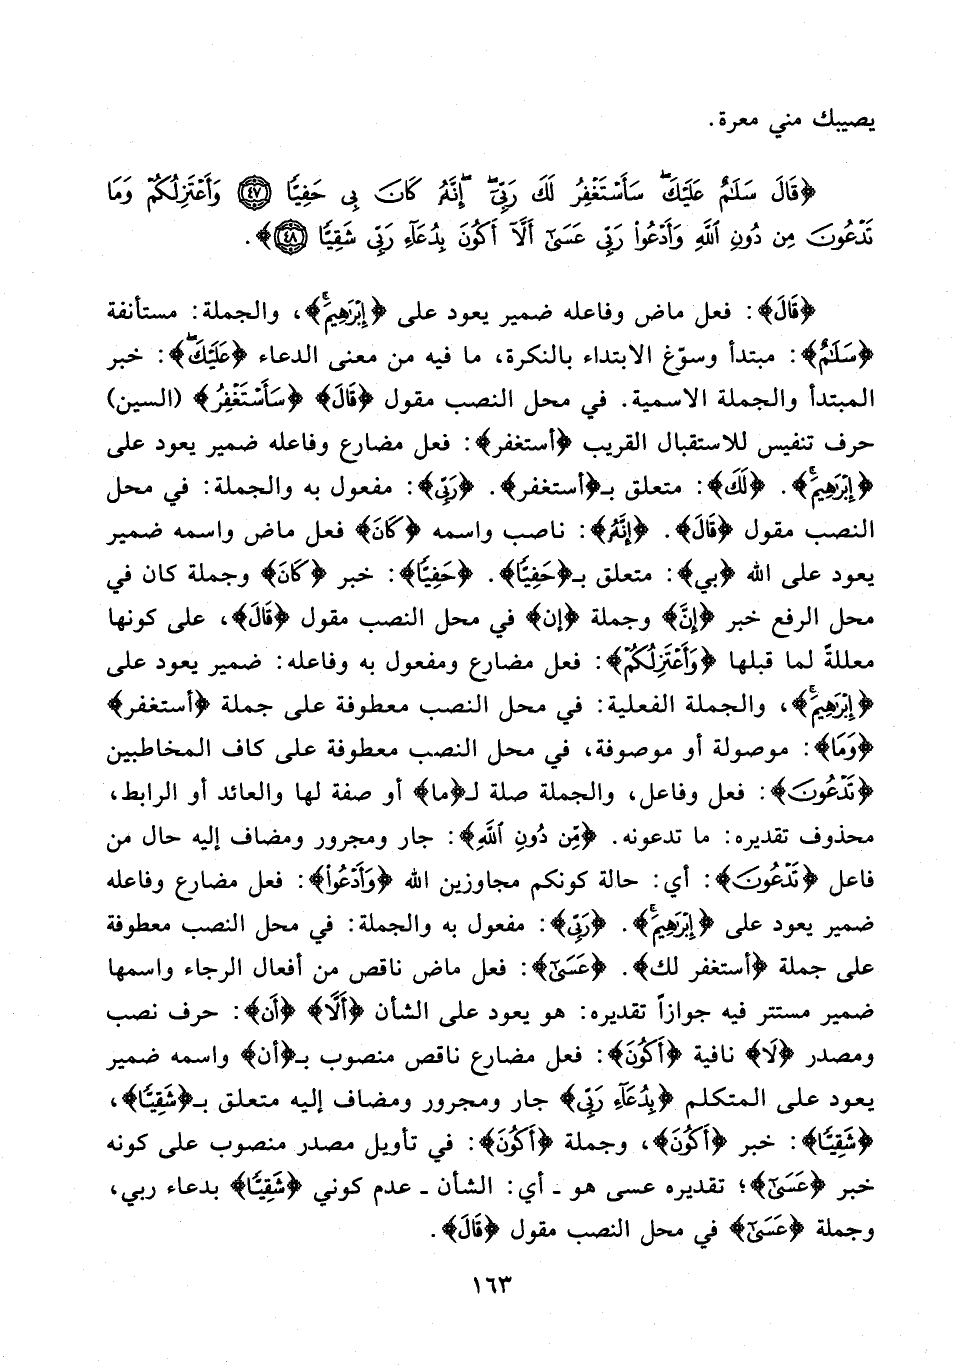 يصيبك مني معرة.
﴿قَالَ سَلَٰمٌ عَلَيْكَ ۖ سَأَسْتَغْفِرُ لَكَ رَبِّيٓ ۖ إِنَّهُۥ كَانَ بِي حَفِيًّا ٤٧ وَأَعْتَزِلُكُمْ وَمَا
تَدْعُونَ مِن دُونِ ٱللَّهِ وَأَدْعُوا۟ رَبِّي عَسَىٰٓ أَلَّآ أَكُونَ بِدُعَآءِ رَبِّي شَقِيًّا ٤٨﴾.
﴿قَالَ﴾: فعل ماض وفاعله ضمير يعود على ﴿إِبْرَٰهِيمُ ۚ﴾، والجملة: مستأنفة
﴿سَلَٰمٌ﴾: مبتدأ وسوّغ الابتداء بالنكرة، ما فيه من معنى الدعاء ﴿عَلَيْكَ ۖ﴾: خبر
المبتدأ والجملة الاسمية. في محل النصب مقول ﴿قَالَ﴾ ﴿سَأَسْتَغْفِرُ﴾ (السين)
حرف تنفيس للاستقبال القريب ﴿أستغفر﴾: فعل مضارع وفاعله ضمير يعود على
﴿إِبْرَٰهِيمُ ۚ﴾. ﴿لَكَ﴾: متعلق بـ﴿أستغفر﴾. ﴿رَبِّي﴾: مفعول به والجملة: في محل
النصب مقول ﴿قَالَ﴾. ﴿إِنَّهُۥ﴾: ناصب واسمه ﴿كَانَ﴾ فعل ماض واسمه ضمير
يعود على الله ﴿بي﴾: متعلق بـ﴿حَفِيًّا﴾. ﴿حَفِيًّا﴾: خبر ﴿كَانَ﴾ وجملة كان في
محل الرفع خبر ﴿إِنَّ﴾ وجملة ﴿إن﴾ في محل النصب مقول ﴿قَالَ﴾، على كونها
معللةً لما قبلها ﴿وَأَعْتَزِلُكُمْ﴾: فعل مضارع ومفعول به وفاعله: ضمير يعود على
﴿إِبْرَٰهِيمُ ۚ﴾، والجملة الفعلية: في محل النصب معطوفة على جملة ﴿أستغفر﴾
﴿وَمَا﴾: موصولة أو موصوفة، في محل النصب معطوفة على كاف المخاطبين
﴿تَدْعُونَ﴾: فعل وفاعل، والجملة صلة لـ﴿ما﴾ أو صفة لها والعائد أو الرابط،
محذوف تقديره: ما تدعونه. ﴿مِّن دُونِ ٱللَّهِ﴾: جار ومجرور ومضاف إليه حال من
فاعل ﴿تَدْعُونَ﴾: أي: حالة كونكم مجاوزين الله ﴿وَأَدْعُوا۟﴾: فعل مضارع وفاعله
ضمير يعود على ﴿إِبْرَٰهِيمُ ۚ﴾. ﴿رَبِّي﴾: مفعول به والجملة: في محل النصب معطوفة
على جملة ﴿أستغفر لك﴾. ﴿عَسَىٰٓ﴾: فعل ماض ناقص من أفعال الرجاء واسمها
ضمير مستتر فيه جوازاً تقديره: هو يعود على الشأن ﴿أَلَّا﴾ ﴿أَن﴾: حرف نصب
ومصدر ﴿لَا﴾ نافية ﴿أَكُونَ﴾: فعل مضارع ناقص منصوب بـ﴿أن﴾ واسمه ضمير
يعود على المتكلم ﴿بِدُعَآءِ رَبِّي﴾ جار ومجرور ومضاف إليه متعلق بـ﴿شَقِيًّا﴾،
﴿شَقِيًّا﴾: خبر ﴿أَكُونَ﴾، وجملة ﴿أَكُونَ﴾: في تأويل مصدر منصوب على كونه
خبر ﴿عَسَىٰٓ﴾؛ تقديره عسى هو ـ أي: الشأن ـ عدم كوني ﴿شَقِيًّا﴾ بدعاء ربي،
وجملة ﴿عَسَىٰٓ﴾ في محل النصب مقول ﴿قَالَ﴾.
١٦٣